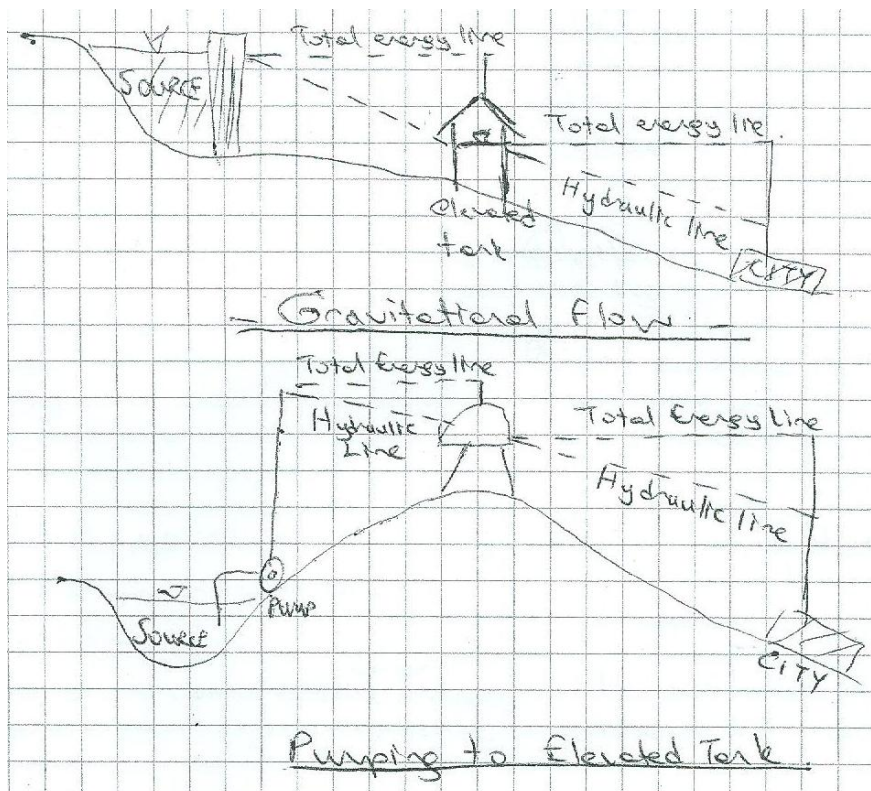 Total energy line
SOURCE
Total energy line.
Hydraulic line
elevated
tank
CITY
- Gravitational Flow -
Total Energy line
Hydraulic
Line
Total Energy Line
Hydraulic line
Pump
Source
CITY
Pumping to Elevated Tank